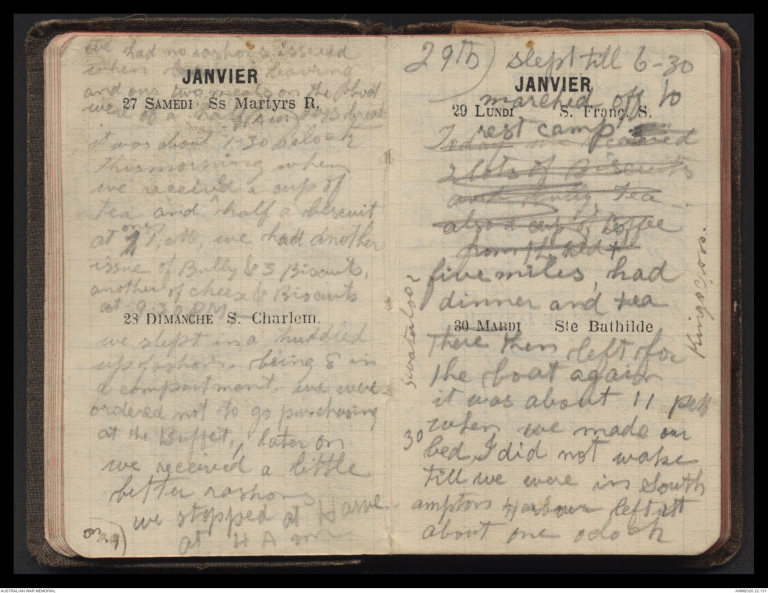 we had no rashons issued
when leaving
and our two meals on the boat
JANVIER
were of a half
27 SAMEDI Ss Martyrs R.
it was about 1-30 oclock
this morning when
we received a cup of
tea and half a biscuit
at one P.M., we had another
issue of Bully & 3 Biscuits,
another of cheese & Biscuits
at 9-30 PM
28 DIMANCHE S. Charlem.
we slept in a huddled
up fashon, being 8 in
a compartment. we were
ordered not to go purchasing
at the Buffet, later on
we received a little
better rashons
we stopped at Havre
on 29) at 4 A m
29th) slept till 6-30
JANVIER
marched off to
29 LUNDI S. Franç. S.
rest camp
Today we received
2 lots of Biscuits
and Bully, Tea
also a cup of Coffee
from the Red +
five miles, had
dinner and tea
30 MARDI Ste Bathilde
There then left for
the boat again
it was about 11 pm
when we made our
30 bed, I did not wake
till we were in South
ampton Harbour left it
about one oclock
waterloo
Kings Cross.
AUSTRALIAN WAR MEMORIAL